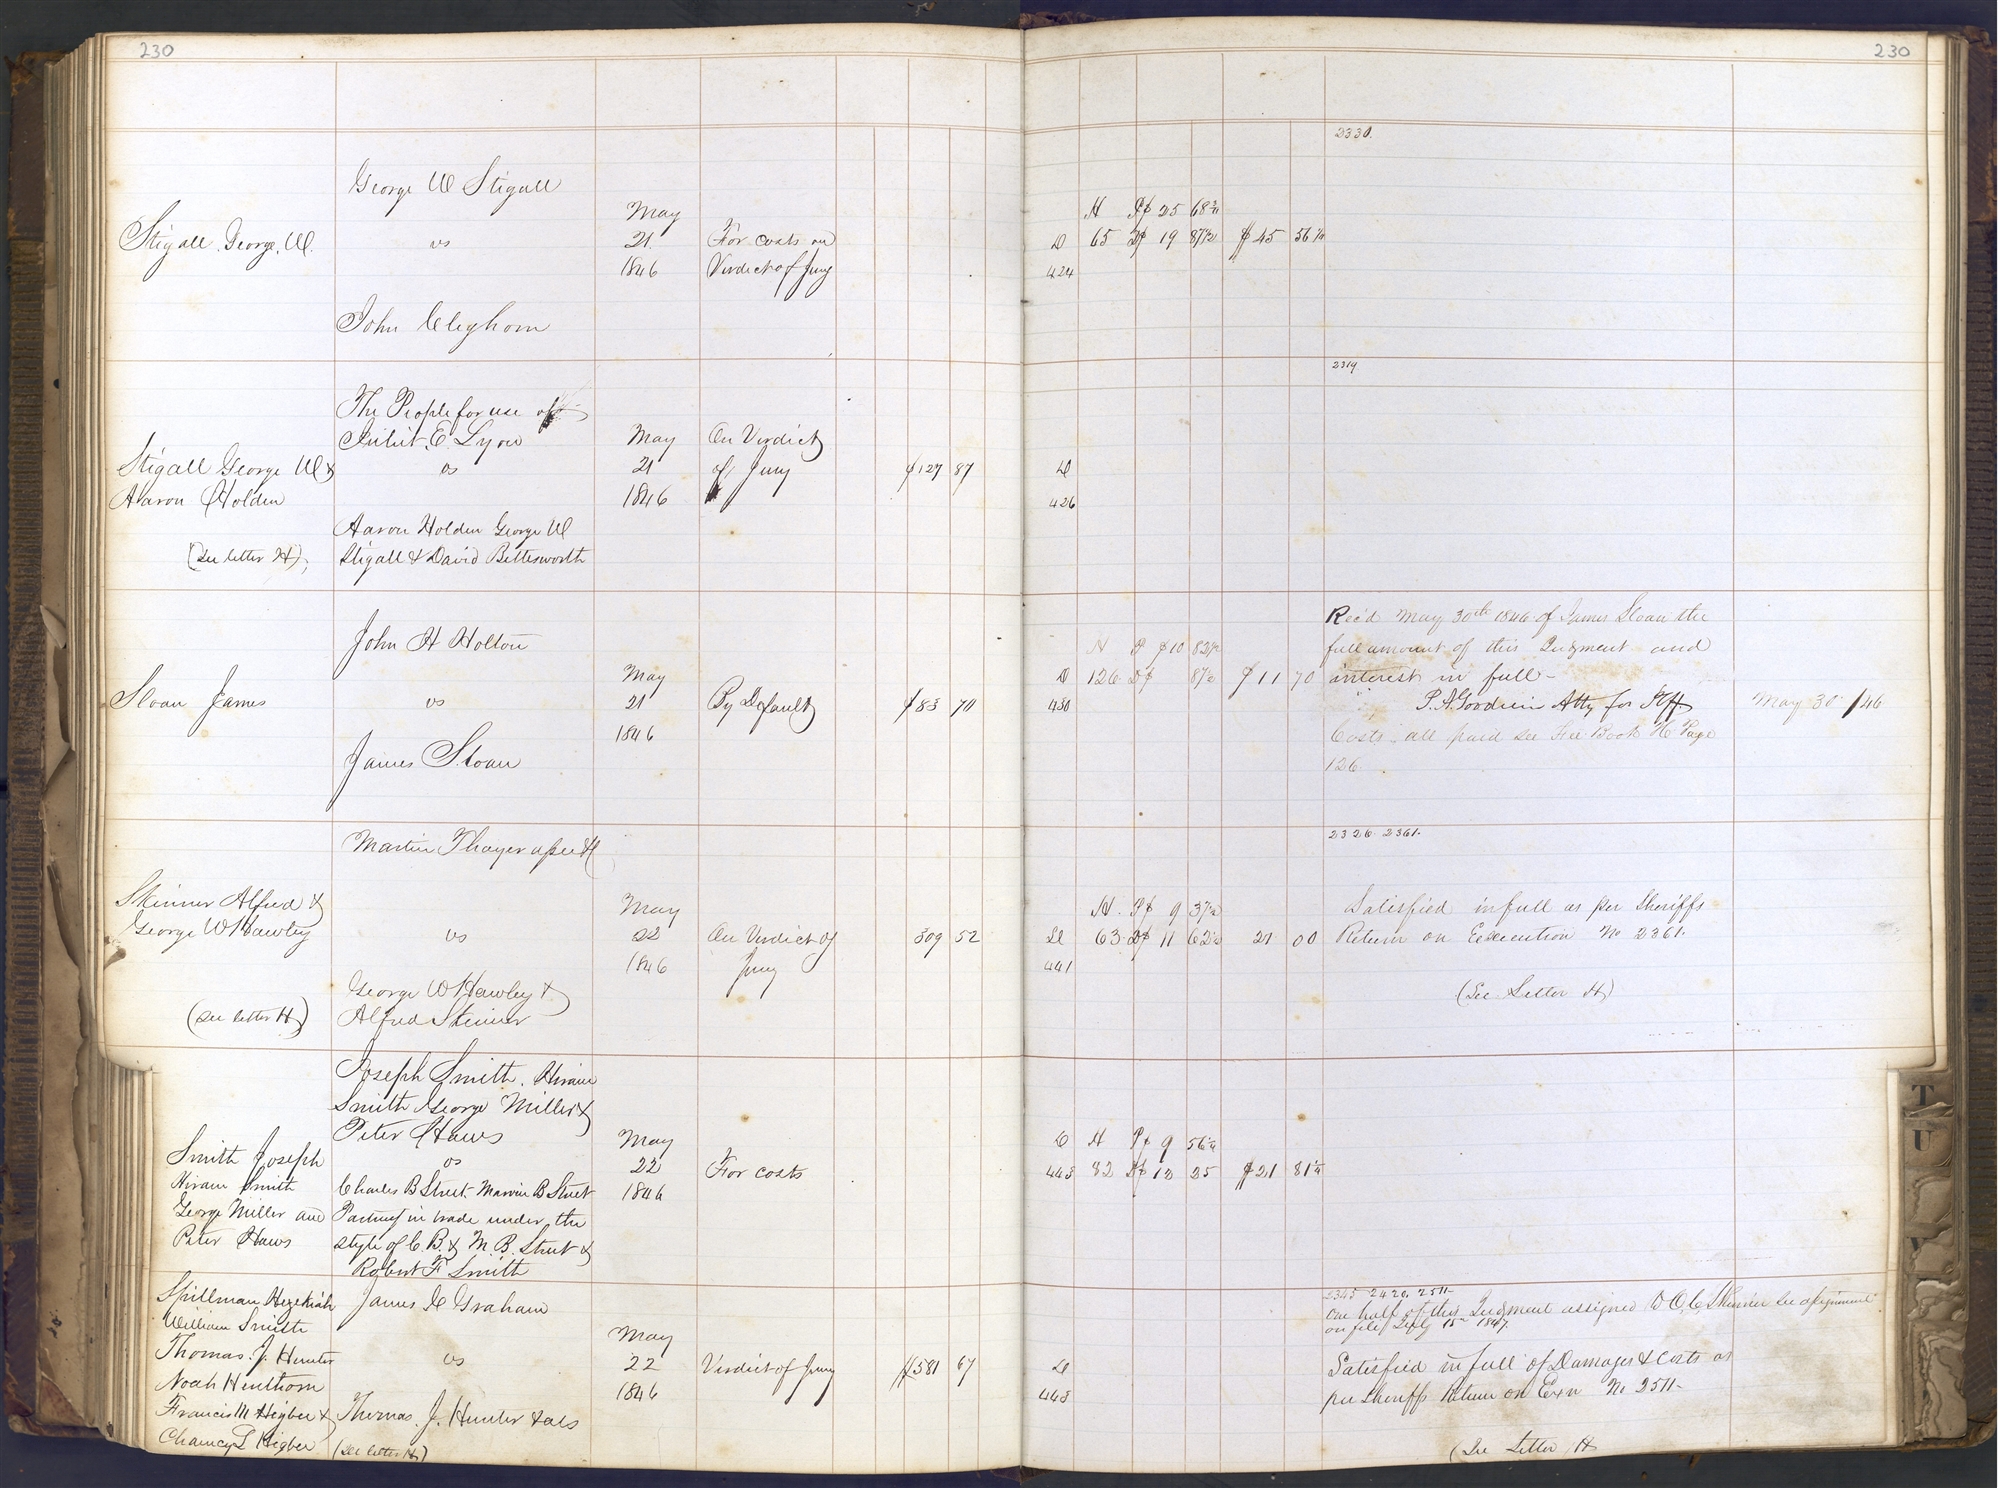 230
230
2330.
George W Stigall
Stigall George. W.
vs
May
21
1846
For costs on
Verdict of Jury
D
424
H P$ 25 68¾
65 D$ 19 87½ $45 56¼
John Cleghorn
2319
The People for use of
E. Lyon
vs
Stigall George W &
Aaron Holden
(See letter H)
May
21
1846
On Verdict
of Jury
$127 87
D
426
Aaron Holden George W
Stigall & David Bettesworth
John H Holton
Sloan James
vs
May
21
1846
By Default
$83 70
D
430
H P $10 82½
126 D$ 87½ $11 70
James Sloan
Rec'd May 30th 1846 of James Sloan the
full amount of this Judgment and
interest in full-
P. A. Goodwin Atty for Plff.
May 30 /46
Costs all paid see Fee Book H Page
126
2326 2361.
Martin Thayer
Skinner Alfred &
George W Hawley
(See letter H)
vs
May
22
1846
On Verdict of
Jury
309 52
D
441
H. P$ 9 37½
63 D$ 11 62½ 21 00
Satisfied in full as per Sheriffs
Return on Execution No 2361.
(See Letter H)
George W Hawley &
Alfred Skinner
Joseph Smith. Hiram
Smith George Miller &
Peter Haws
vs
Smith Joseph
Hiram Smith
George Miller and
Peter Haws
May
22
1846
For costs
D
443
H P$ 9 56¼
82 D$ 12 25 $21 81¼
Charles B Street Marvin B Street
Partners in trade under the
style of C. B. & M. B. Street &
Robert F Smith
2345 2420. 2511-
One half of this Judgment assigned to O. C. Skinner See assignment
on file 15th 1847.
Spillman Hezekiah
William Smith
Thomas. J. Hunter
Noah Henthorn
Francis M Higbee &
Chancy L Higbee
James D Graham
vs
Thomas. J. Hunter & als
(See letter H)
May
22
1846
Verdict of Jury
$581 67
D
443
Satisfied in full of Damages & Costs as
per Sheriffs Return on Exn No 2511-
(See Letter H
T
U
V